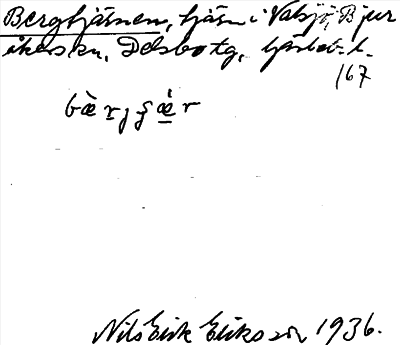 Bergtjärnen, tjärn i Valsjö, Bjur
åkers sn, Delsbo tg,
167
Nils Erik Eriksson 1936.